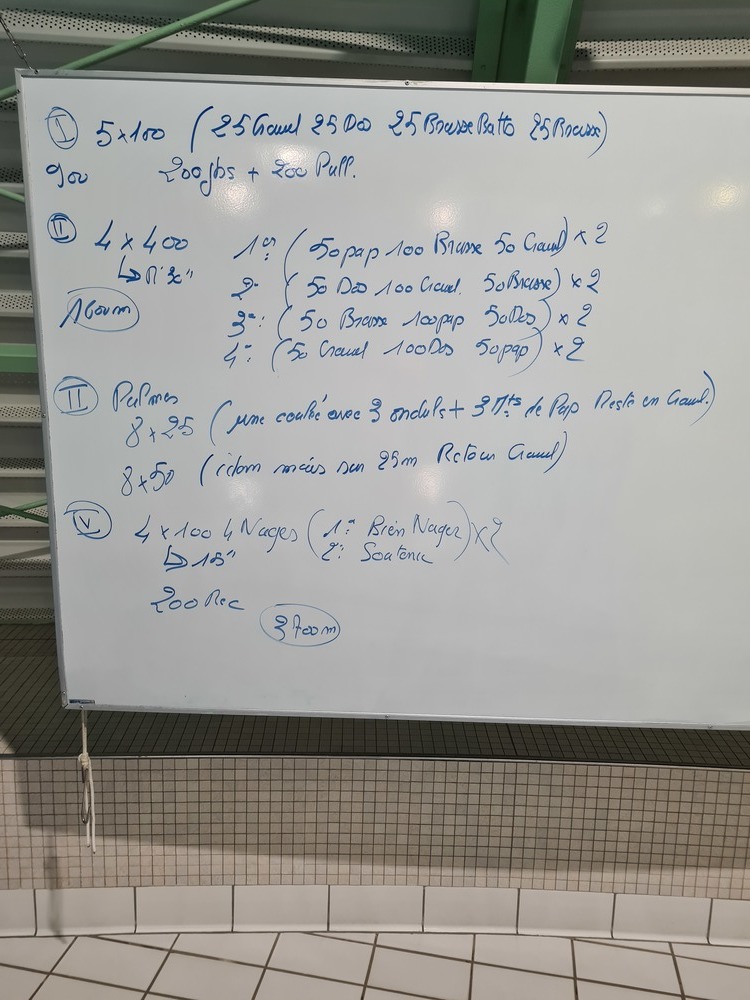 I 5x100 (25 Crawl 25 Dos 25 Brasse Batto 25 Brasse)
900 200 jbs + 200 Pull.
II 4 x 400 1er: (50 pap 100 Brasse 50 Crawl) x 2
↳ R' 30" 2e (50 Dos 100 Crawl. 50 Brasse) x 2
1600m 3e: (50 Brasse 100 pap 50 Dos) x 2
4e: (50 Crawl 100 Dos 50 pap) x 2
III Palmes
8 x 25 (une coulée avec 3 onduls + 3 Mts de Pap Reste en Crawl.)
8x50 (idem mais sur 25m Retour Crawl)
IV 4 x 100 4 Nages (1e: Bien Nager) x 2
↳ 15" 2e: Soutenu
200 Rec
3700m